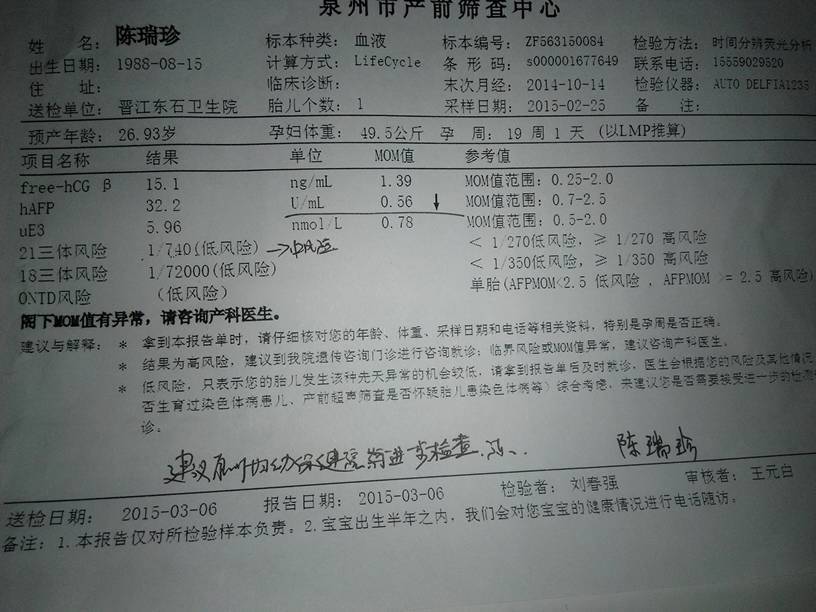 泉州市产前筛查中心
姓 名: 陈瑞珍 标本种类: 血液 标本编号: ZF563150084 检验方法: 时间分辨荧光分析
出生日期: 1988-08-15 计算方式: LifeCycle 条 形 码: s000001677649 联系电话: 15559029520
住 址: 临床诊断: 末次月经: 2014-10-14 检验仪器: AUTO DELFIA1235
送检单位: 晋江东石卫生院 胎儿个数: 1 采样日期: 2015-02-25 备 注:
预产年龄: 26.93岁 孕妇体重: 49.5公斤 孕 周: 19 周 1 天 (以LMP推算)
项目名称 结果 单位 MOM值 参考值
free-hCG β 15.1 ng/mL 1.39 MOM值范围: 0.25-2.0
hAFP 32.2 U/mL 0.56 ↓ MOM值范围: 0.7-2.5
uE3 5.96 nmol/L 0.78 MOM值范围: 0.5-2.0
21三体风险 1/740(低风险) → 中风险 < 1/270低风险, ≥ 1/270 高风险
18三体风险 1/72000(低风险) < 1/350低风险, ≥ 1/350 高风险
ONTD风险 (低风险) 单胎(AFPMOM<2.5 低风险 , AFPMOM >= 2.5 高风险)
阁下MOM值有异常, 请咨询产科医生。
建议与解释: * 拿到本报告单时, 请仔细核对您的年龄、体重、采样日期和电话等相关资料, 特别是孕周是否正确。
* 结果为高风险, 建议到我院遗传咨询门诊进行咨询就诊; 临界风险或MOM值异常, 建议咨询产科医生。
* 低风险, 只表示您的胎儿发生该种先天异常的机会较低, 请拿到报告单后及时就诊, 医生会根据您的风险及其他情况
否生育过染色体病患儿、产前超声筛查是否怀疑胎儿患染色体病等) 综合考虑, 来建议您是否需要接受进一步的检测
诊。
建议泉州妇幼保健院 进一步检查 陈瑞珍
送检日期: 2015-03-06 报告日期: 2015-03-06 检验者: 刘春强 审核者: 王元白
备注: 1.本报告仅对所检验样本负责。2.宝宝出生半年之内, 我们会对您宝宝的健康情况进行电话随访。